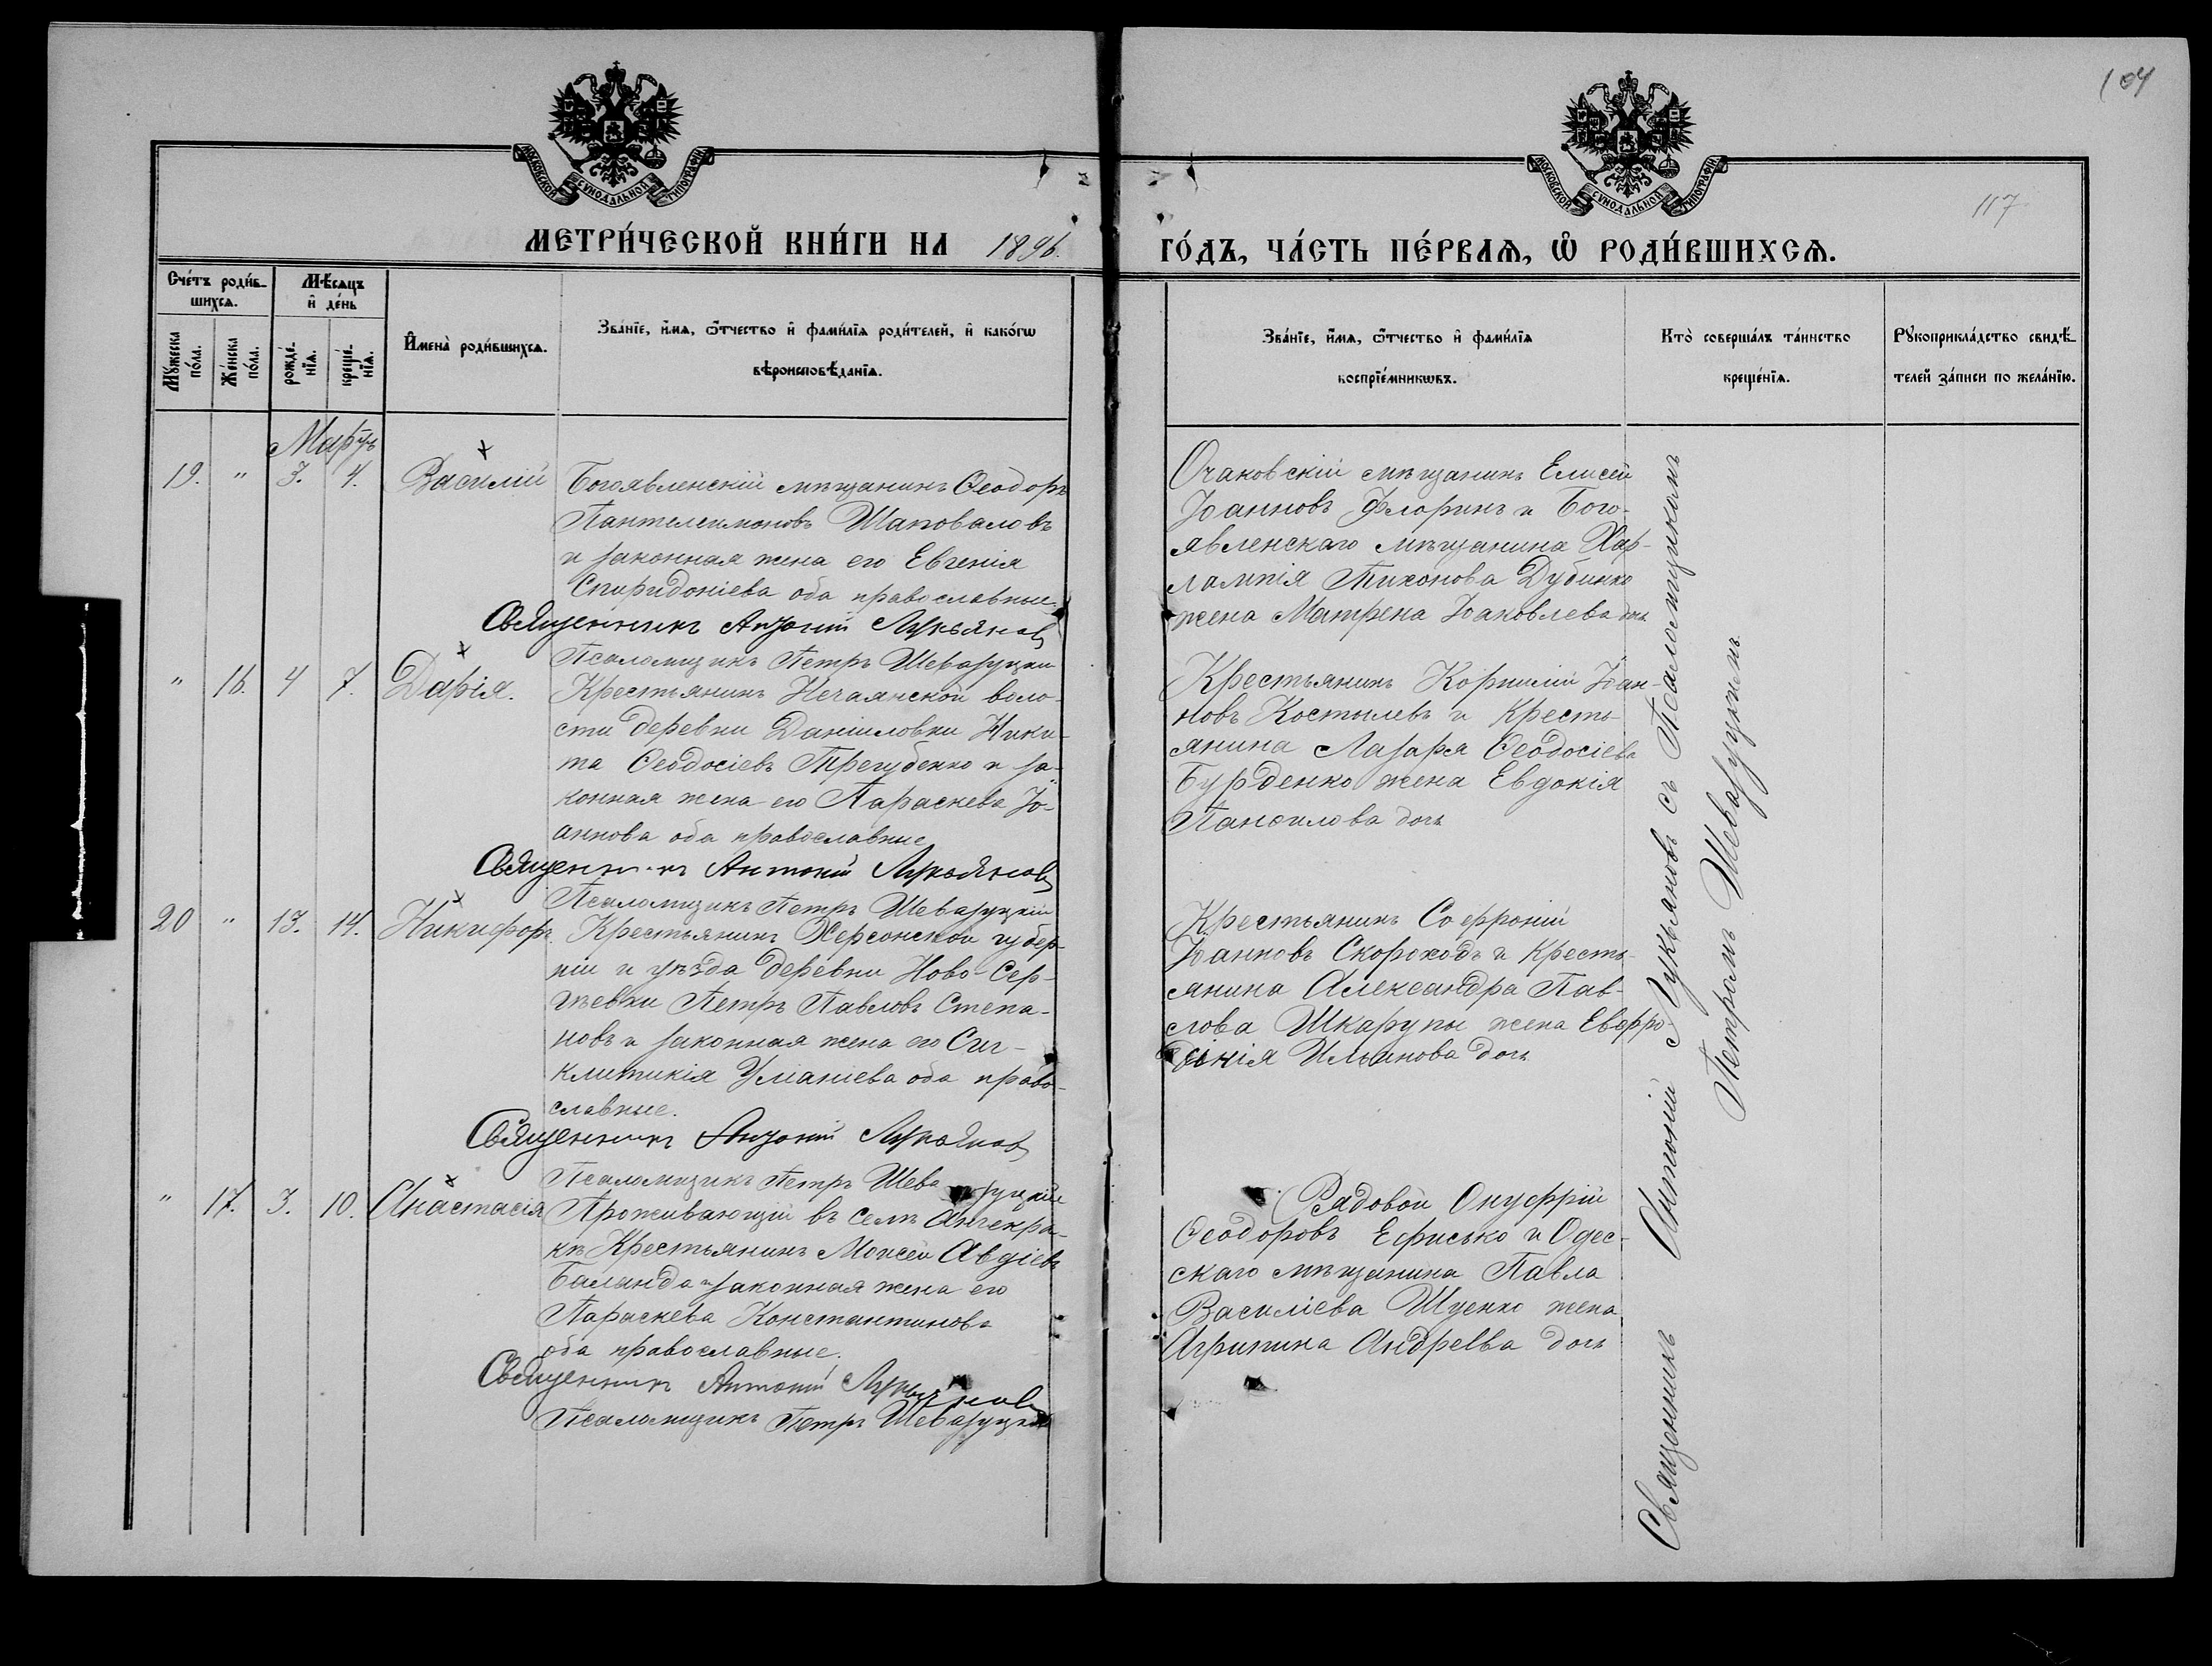 104
117
МОСКОВСКОЙ СѴНОДАЛЬНОЙ ТИПОГРАФІИ
МОСКОВСКОЙ СѴНОДАЛЬНОЙ ТИПОГРАФІИ
МЕТРИ́ЧЕСКОЙ КНИ́ГИ НА 1896.
ГО́ДЪ, ЧА́СТЬ ПЕ́РВАЯ, Ѡ РОДИ́ВШИХСЯ.
Сче́тъ роди́в-
шихся.
Мѣсяцъ
и де́нь
Мужеска
по́ла.
Же́нска
по́ла.
рожде́-
нія.
креще́-
нія.
Имена̀ роди́вшихся.
Зва́ніе, и́мя, ѻ́тчество и фами́лія роди́телей, и како́гѡ
вѣроисповѣ́данія.
Зва́ніе, и́мя, ѻ́тчество и фами́лія
воспріе́мникѡвъ.
Кто̀ соверша́лъ та́инство
креще́нія.
Рукоприкла́дство свидѣ́-
телей за́писи по жела́нію.
Мартъ
19. " 3. 4. Василій
Богоявленскій мѣщанинъ Ѳеодоръ
Пантелеимоновъ Шаповаловъ
и законная жена его Евгенія
Спиридоніева оба православные.
Священникъ Антоній Лукьяновъ
Псаломщикъ Петръ Шеваруцкій
Очаковскій мѣщанинъ Елисей
Іоанновъ Флоринъ и Бого-
явленскаго мѣщанина Хар-
лампія Тихонова Дубинко
жена Матрена Іаковлева дочь
" 16. 4 7. Дарія.
Крестьянинъ Нечаянской воло-
сти деревни Даниловки Ники-
та Ѳеодосіевъ Трегубенко и за-
конная жена его Параскева Іо-
аннова оба православные
Священникъ Антоній Лукьяновъ
Псаломщикъ Петръ Шеваруцкій
Крестьянинъ Корнилій Іоан-
новъ Костылевъ и кресть-
янина Лазаря Ѳеодосіева
Бурденко жена Евдокія
Панѳилова дочь
20 " 13. 14. Никифоръ
Крестьянинъ Херсонской губер-
ніи и уѣзда деревни Ново-Сер-
гѣевки Петръ Павловъ Степа-
новъ и законная жена его Син-
клитикія оба право-
славные.
Священникъ Антоній Лукьяновъ
Псаломщикъ Петръ Шеваруцкій
Крестьянинъ Софроній
Іоанновъ Скороходъ и кресть-
янина Александра Пав-
лова Шкарупы жена Евфро-
синія Ильинова дочь
" 17. 3. 10. Анастасія
Проживающій въ селѣ Анчекра-
кѣ Крестьянинъ Моисей Авдіевъ
Баланда и законная жена его
Параскева Константинова
оба православные.
Священникъ Антоній Лукьяновъ
Псаломщикъ Петръ Шеваруцкій
Рядовой Онуфрій
Ѳеодоровъ Ефисько и Одес-
скаго мѣщанина Павла
Василіева жена
Агрипина Андреева дочь
Священникъ Антоній Лукьяновъ съ Псаломщикомъ
Петромъ Шеваруцкимъ.